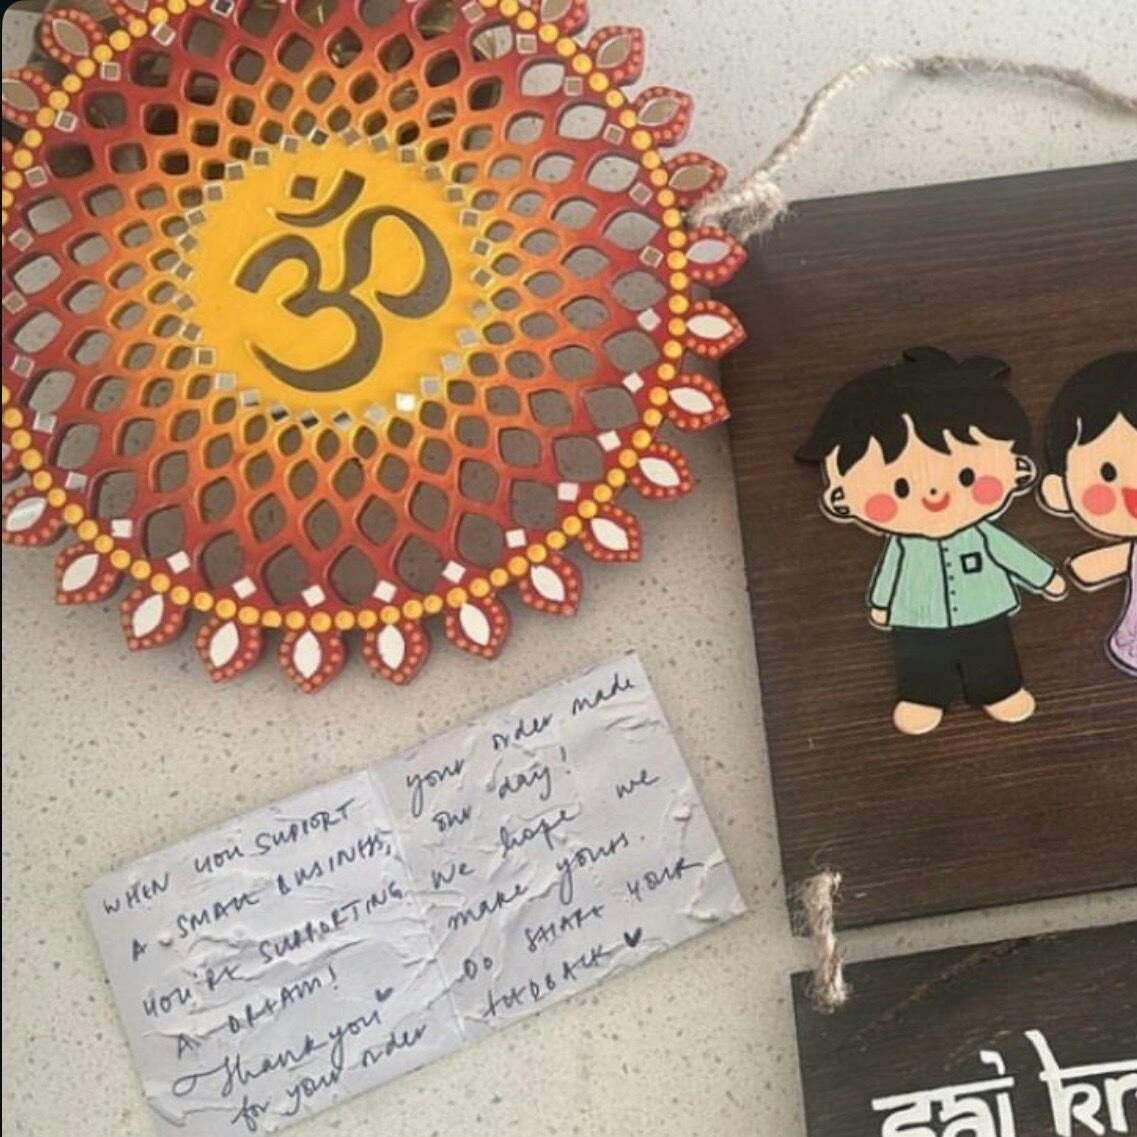 ॐ
WHEN YOU SUPPORT
A SMALL BUSINESS,
YOU'RE SUPPORTING
A DREAM!
Thank you ♥
for your order
your order made
our day!
We hope we
make yours.
DO SHARE YOUR
FEEDBACK ♥
sai kr